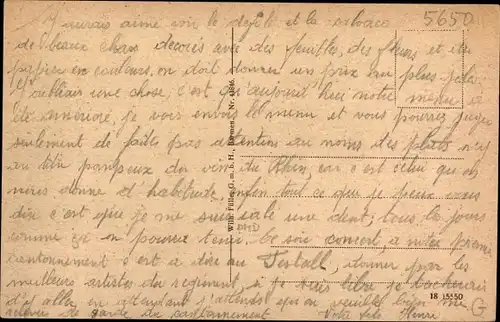 J'aurais aimé voir le défilé et la
5650
de beaux chars decorés avec des feuilles, des fleurs et du
papier en couleurs, on doit donner un prix au plus joli.
J'oubliais une chose, c'est qu'aujourd'hui notre menu
de amélioré, je vous envois le menu et vous pourrez juger
seulement de faites pas attention au noms des plats n'y
au titre pompeux du vin du Rhin, car c'est celui qu'on
nous donne d'habitude, enfin tout ce que je peux vous
dire c'est que je me suis calé une dent, tous les jours
comme ça on pourrai tenir. Ce soir concert, a notre
cantonnement c'est a dire au Festhall, donner par les
meilleurs artistes du régiment, si je suis libre je tacherai
d'y aller, en attendant j'attends qu'on veuille bien me
relever de garde du cantonnement. Votre fils Henri
Wilh. Füller, G. m. b. H., Bremen. Nr.
18 15550